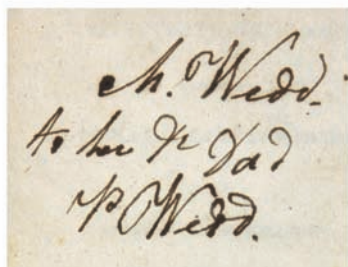 M. Wedd.
to her Dr Dad
P Wedd.